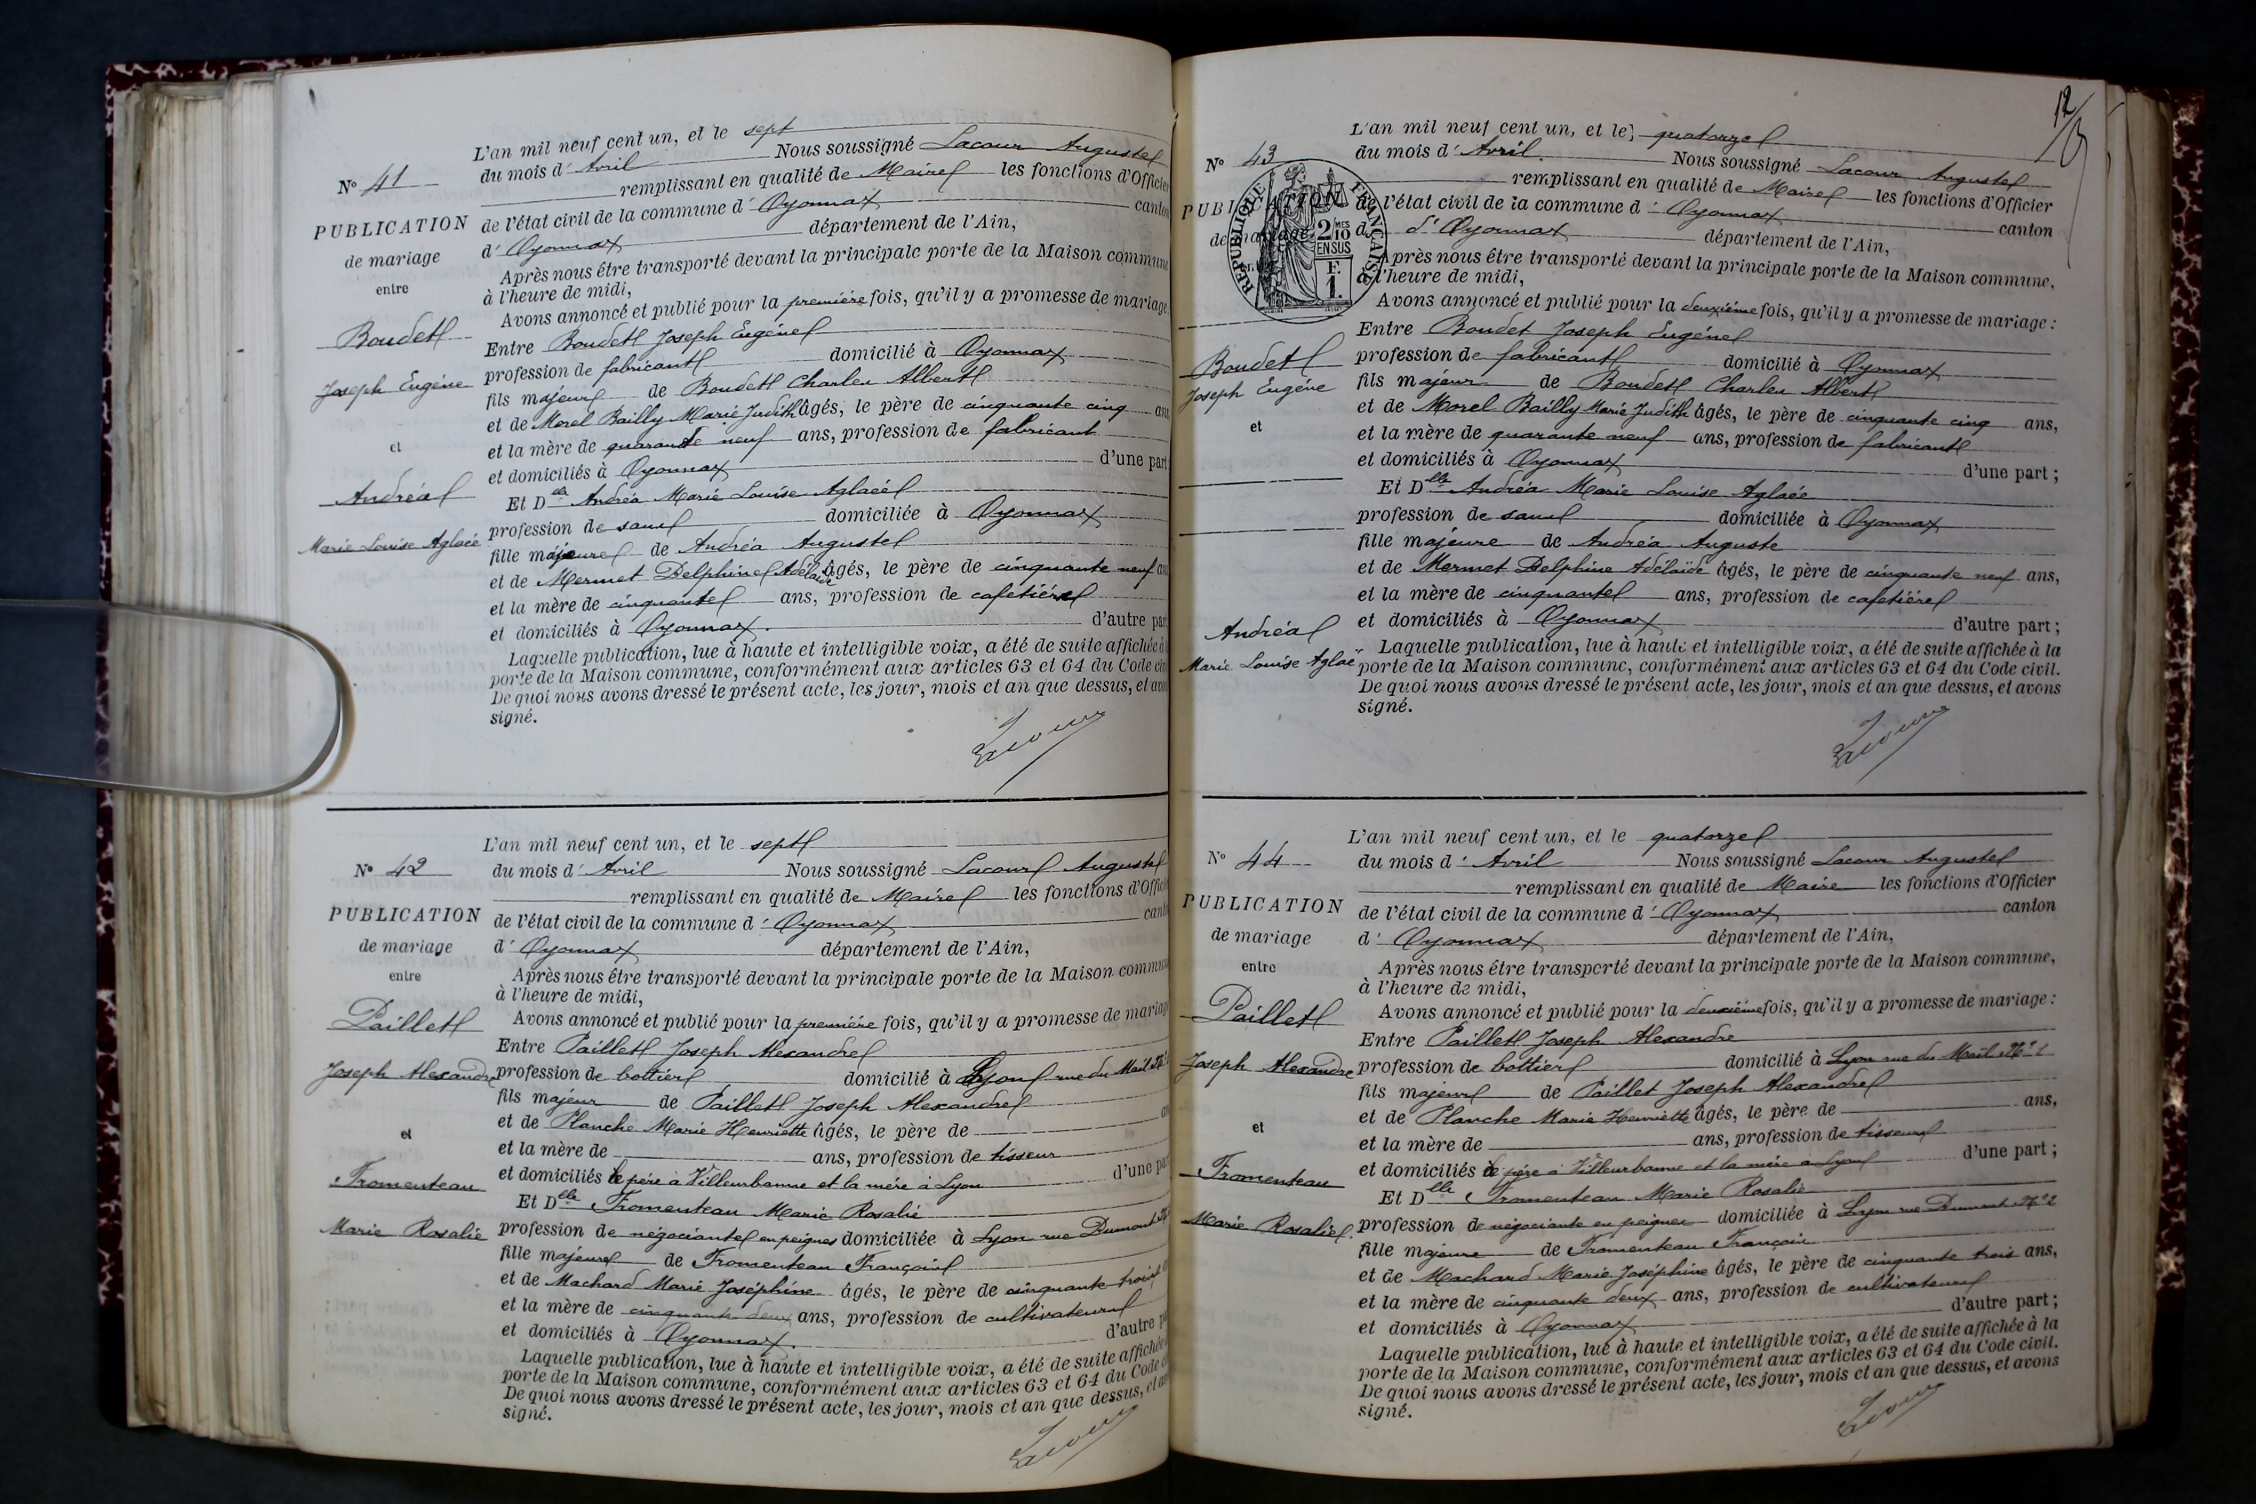 N° 41
PUBLICATION
de mariage
entre
Boudet
Joseph Eugène
et
Andréa
Marie Louise Aglaée
L'an mil neuf cent un, et le sept
du mois d' Avril Nous soussigné Lacour Auguste
remplissant en qualité de Maire les fonctions d'Officier
de l'état civil de la commune d' Oyonnax canton
d' Oyonnax département de l'Ain,
Après nous être transporté devant la principale porte de la Maison commune
à l'heure de midi,
Avons annoncé et publié pour la première fois, qu'il y a promesse de mariage
Entre Boudet Joseph Eugène
profession de fabricant domicilié à Oyonnax
fils majeur de Boudet Charles Albert
et de Morel Bailly Marie Judith âgés, le père de cinquante cinq ans
et la mère de quarante neuf ans, profession de fabricant
et domiciliés à Oyonnax d'une part
Et Dlle Andréa Marie Louise Aglaée
profession de sans domiciliée à Oyonnax
fille majeure de Andréa Auguste
et de Mermet Delphine Adélaïde âgés, le père de cinquante neuf ans
et la mère de cinquante ans, profession de cafetière
et domiciliés à Oyonnax. d'autre part
Laquelle publication, lue à haute et intelligible voix, a été de suite affichée à la
porte de la Maison commune, conformément aux articles 63 et 64 du Code civil
De quoi nous avons dressé le présent acte, les jour, mois et an que dessus, et avons
signé.
Lacour
N° 42
PUBLICATION
de mariage
entre
Paillet
Joseph Alexandre
et
Fromenteau
Marie Rosalie
L'an mil neuf cent un, et le sept
du mois d' Avril Nous soussigné Lacour Auguste
remplissant en qualité de Maire les fonctions d'Officier
de l'état civil de la commune d' Oyonnax canton
d' Oyonnax département de l'Ain,
Après nous être transporté devant la principale porte de la Maison commune
à l'heure de midi,
Avons annoncé et publié pour la première fois, qu'il y a promesse de mariage
Entre Paillet Joseph Alexandre
profession de bottier domicilié à Lyon rue du Mail N°
fils majeur de Paillet Joseph Alexandre
et de Planche Marie Henriette âgés, le père de ans
et la mère de ans, profession de tisseur
et domiciliés le père à Villeurbanne et la mère à Lyon d'une part
Et Dlle Fromenteau Marie Rosalie
profession de négociante en peignes domiciliée à Lyon rue Dumont N°
fille majeure de Fromenteau François
et de Machard Marie Joséphine âgés, le père de cinquante trois
et la mère de cinquante deux ans, profession de cultivateurs
et domiciliés à Oyonnax. d'autre part
Laquelle publication, lue à haute et intelligible voix, a été de suite affichée
porte de la Maison commune, conformément aux articles 63 et 64 du Code
De quoi nous avons dressé le présent acte, les jour, mois et an que dessus, et
signé.
Lacour
12
N° 43
PUBLICATION
de mariage
RÉPUBLIQUE FRANÇAISE
2 MES
10
EN SUS
F.
1.
Boudet
Joseph Eugène
et
Andréa
Marie Louise Aglaé
L'an mil neuf cent un, et le quatorze
du mois d' Avril. Nous soussigné Lacour Auguste
remplissant en qualité de Maire les fonctions d'Officier
de l'état civil de la commune d' Oyonnax canton
d' Oyonnax département de l'Ain,
Après nous être transporté devant la principale porte de la Maison commune,
à l'heure de midi,
Avons annoncé et publié pour la deuxième fois, qu'il y a promesse de mariage :
Entre Boudet Joseph Eugène
profession de fabricant domicilié à Oyonnax
fils majeur de Boudet Charles Albert
et de Morel Bailly Marie Judith âgés, le père de cinquante cinq ans,
et la mère de quarante neuf ans, profession de fabricant
et domiciliés à Oyonnax d'une part ;
Et Dlle Andréa Marie Louise Aglaée
profession de sans domiciliée à Oyonnax
fille majeure de Andréa Auguste
et de Mermet Delphine Adélaïde âgés, le père de cinquante neuf ans,
et la mère de cinquante ans, profession de cafetière
et domiciliés à Oyonnax d'autre part ;
Laquelle publication, lue à haute et intelligible voix, a été de suite affichée à la
porte de la Maison commune, conformément aux articles 63 et 64 du Code civil.
De quoi nous avons dressé le présent acte, les jour, mois et an que dessus, et avons
signé.
Lacour
N° 44
PUBLICATION
de mariage
entre
Paillet
Joseph Alexandre
et
Fromenteau
Marie Rosalie
L'an mil neuf cent un, et le quatorze
du mois d' Avril Nous soussigné Lacour Auguste
remplissant en qualité de Maire les fonctions d'Officier
de l'état civil de la commune d' Oyonnax canton
d' Oyonnax département de l'Ain,
Après nous être transporté devant la principale porte de la Maison commune,
à l'heure de midi,
Avons annoncé et publié pour la deuxième fois, qu'il y a promesse de mariage :
Entre Paillet Joseph Alexandre
profession de bottier domicilié à Lyon rue du Mail N° 1
fils majeur de Paillet Joseph Alexandre
et de Planche Marie Henriette âgés, le père de ans,
et la mère de ans, profession de tisseur
et domiciliés le père à Villeurbanne et la mère à Lyon d'une part ;
Et Dlle Fromenteau Marie Rosalie
profession de négociante en peignes domiciliée à Lyon rue Dumont N° 2
fille majeure de Fromenteau François
et de Machard Marie Joséphine âgés, le père de cinquante trois ans,
et la mère de cinquante deux ans, profession de cultivateurs
et domiciliés à Oyonnax d'autre part ;
Laquelle publication, lue à haute et intelligible voix, a été de suite affichée à la
porte de la Maison commune, conformément aux articles 63 et 64 du Code civil.
De quoi nous avons dressé le présent acte, les jour, mois et an que dessus, et avons
signé.
Lacour